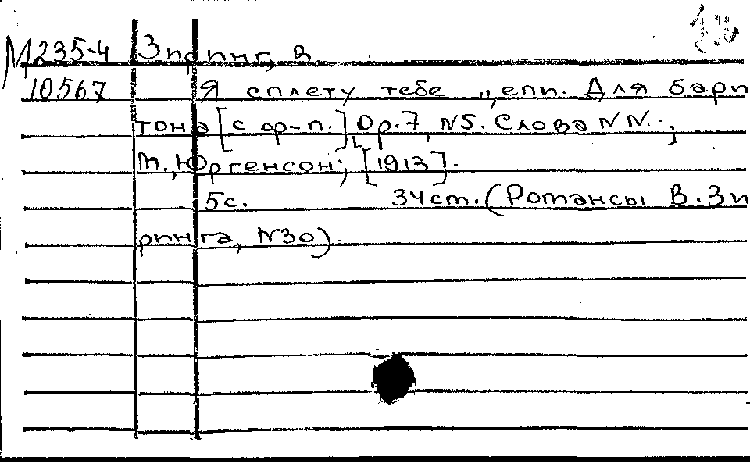 М235-4 Зиринг, В.
10567 Я сплету тебе цепи. Для бари
тона [с ф-п.] Op.7, N5. Слова NN.;
М., Юргенсон; [1913].
5с. 34см. (Романсы В. Зи
ринга, N30).